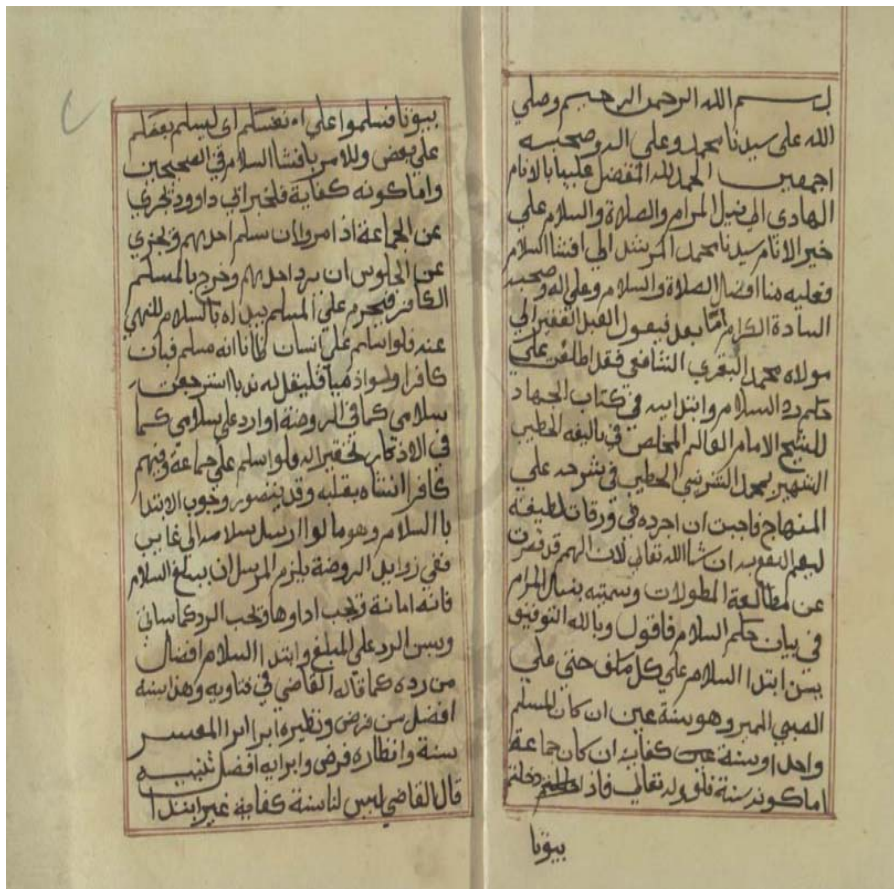 بسم الله الرحمن الرحيم وصلي
الله علي سيدنا محمد وعلي اله وصحبه
اجمعين الحمد لله المفضل علينا بالانام
الهادي الي نيل المرام والصلاة والسلام علي
خير الانام سيدنا محمد المرشد الي افشا السلام
فعليه منا افضل الصلاة والسلام وعلي اله وصحبه
السادة الكرام اما بعد فيقول العبد الفقير الي
مولاه محمد البقري الشافعي فقد اطلعت علي
حكم رد السلام وابتدايه في كتاب الجهاد
للشيخ الامام العالم المخلص في تاليفه الخطيب
الشهير بمحمد الشربيني الخطيب في شرحه علي
المنهاج فاحببت ان اجرده في ورقات لطيفة
ليعم النفع به ان شا الله تعالي لان الهمم قد قصرت
عن مطالعة المطولات وسميته بنيل المرام
في بيان حكم السلام فاقول وبالله التوفيق
يسن ابتدا السلام علي كل مكلف حتي علي
الصبي المميز وهو سنة عين ان كان المسلم
واحدا وسنة كفاية ان كان جماعة
اما كونه سنة فلقوله تعالي فاذا دخلتم
بيوتا
بيوتا فسلموا علي انفسكم اي ليسلم بعضكم
علي بعض وللامر بافشا السلام في الصحيحين
واما كونه كفاية فلخبر ابي داوود يجزي
عن الجماعة اذا مروا ان سلم احدهم ويجزي
عن الجلوس ان يرد احدهم وخرج بالمسلم
الكافر فيحرم علي المسلم بداه بالسلام للنهي
عنه فلو سلم علي انسان ظانا انه مسلم فبان
كافرا ولو ذميا فليقل له ندبا استرجعت
سلامي كما في الروضة او رد علي سلامي كما
في الاذكار تحقيرا له ولو سلم علي جماعة وفيهم
كافر استثناه بقلبه وقد يتصور وجوب الابتدا
بالسلام وهو ما لو ارسل سلامه الي غايب
ففي زوايد الروضة يلزم المرسل ان يبلغ السلام
فانه امانة ويجب اداوها ويجب الرد كما سياتي
ويسن الرد علي المبلغ وابتدا السلام افضل
من رده كما قاله القاضي في فتاويه وهذا سنة
افضل من فرض ونظيره ابرا المعسر
سنة وانظاره فرض وابرايه افضل تنبيه
قال القاضي ليس لنا سنة كفاية غير ابتدا